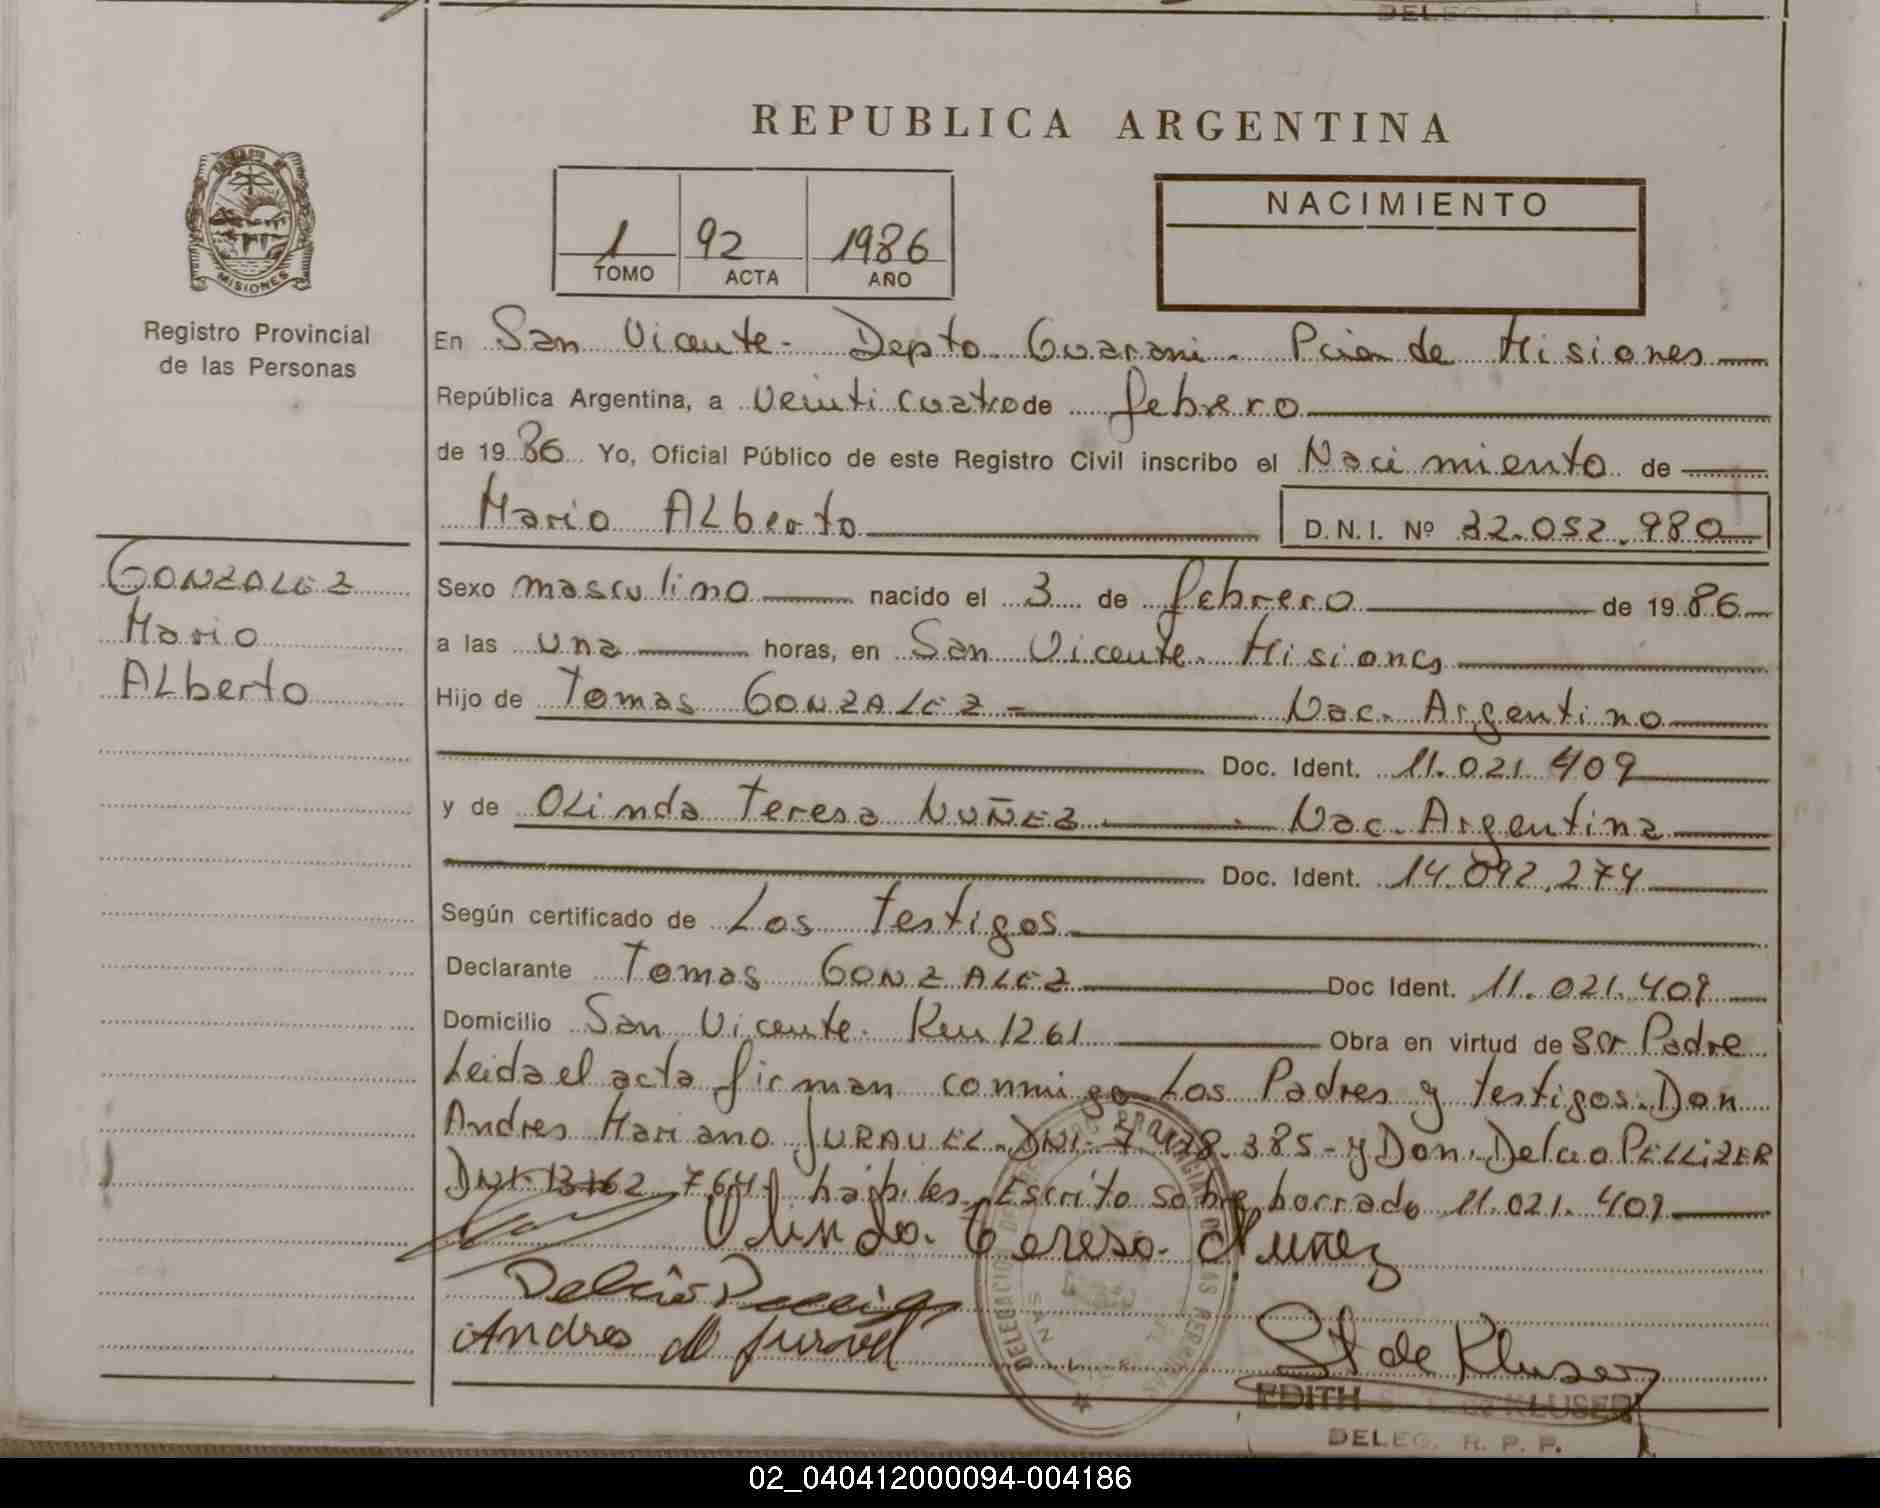 DELEG. R. P. P.
REPUBLICA ARGENTINA
MISIONES
Registro Provincial
de las Personas
1 92 1986
TOMO ACTA AÑO
NACIMIENTO
En San Vicente- Depto Guarani- Pcia de Misiones
República Argentina, a Veinti cuatro de febrero
de 1986 Yo, Oficial Público de este Registro Civil inscribo el Nacimiento de
Mario ALberto D.N.I. Nº 32.052.980
GONZALEZ
Mario
ALberto
Sexo masculino nacido el 3 de febrero de 1986
a las una horas, en San Vicente. Misiones
Hijo de Tomas GONZALEZ - Nac. Argentino
Doc. Ident. 11.021.409
y de OLinda Teresa NUÑEZ Nac. Argentina
Doc. Ident. 14.092.274
Según certificado de Los Testigos
Declarante Tomas GONZALEZ Doc Ident. 11.021.409
Domicilio San Vicente. Km 1261 Obra en virtud de ser Padre
Leida el acta firman conmigo Los Padres y testigos. Don
Andres Mariano JURAUEL. DNI. 385 - y Don. Delcio PELLIZER
DNI 764 habiles. Escrito sobre borrado 11.021.409
Olinda. Teresa. Nuñez
Delcio
Andres M Juravel
St de Kluser
EDITH de KLUSER
DELEG. R. P. P.
02_040412000094-004186